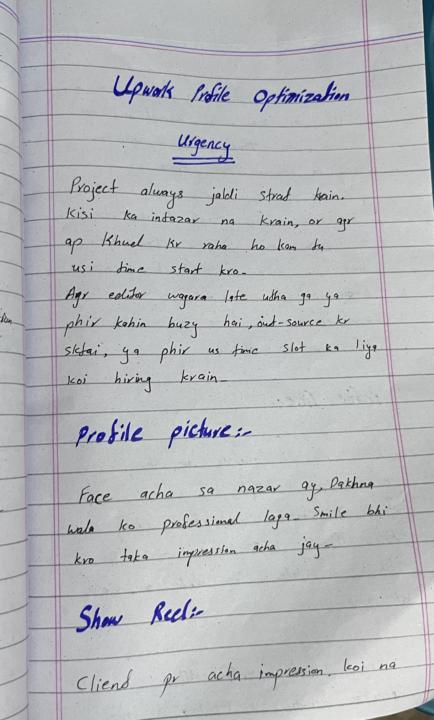 Upwork Profile Optimization
Urgency
Project always jaldi strat krain.
Kisi ka intazar na krain, or agr
ap Khud kr raha ho kam tu
usi time start kro-
Agr editor wagara late utha ga ya
phir kahin buzy hai, out-source kr
sktai, ya phir us time slot ka liya
koi hiring krain-
Profile picture:-
Face acha sa nazar ay, Dakhna
wala ko professional laga- Smile bhi
kro taka impression acha jay-
Show Reel:-
Cliend pr acha impression. koi na